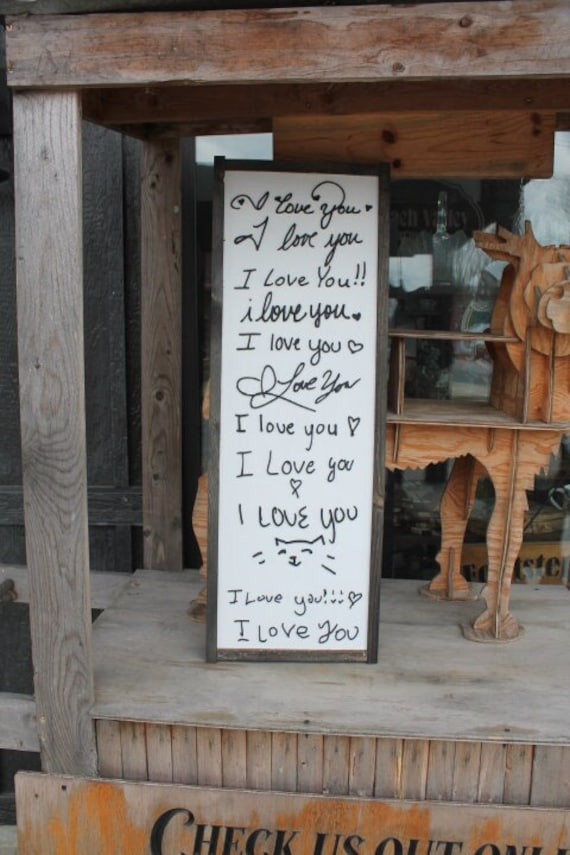 I love you
I love you
I Love You!!
i love you.
I love you
I Love You
I love you
I Love you
I LOVE YOU
I Love you!!
I Love You
CHECK US OUT ONLI